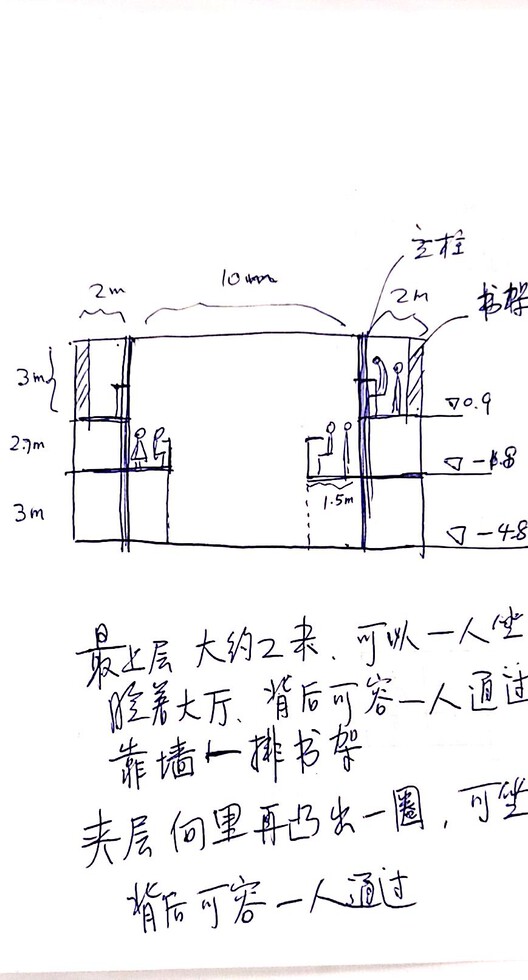 主柱
10mm
2m
2m
书架
3m
▽0.9
2.7m
▽-1.8
3m
1.5m
▽-4.8
最上层 大约2来、可以一人坐
脸着大厅、背后可容一人通过
靠墙一排书架
夹层向里再凸出一圈,可坐
背后可容一人通过